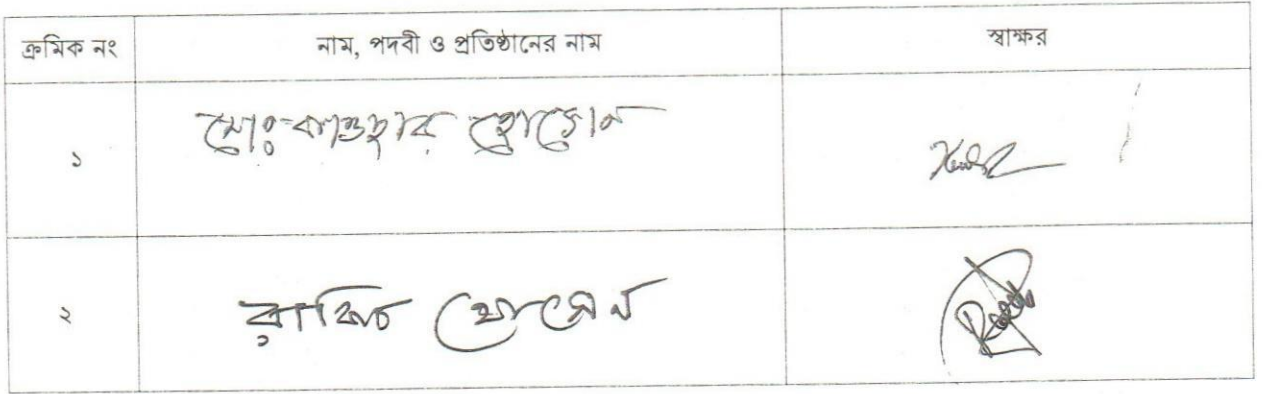 ক্রমিক নং নাম, পদবী ও প্রতিষ্ঠানের নাম স্বাক্ষর
১ মোঃ কাওছার হোসেন
২ হোসেন